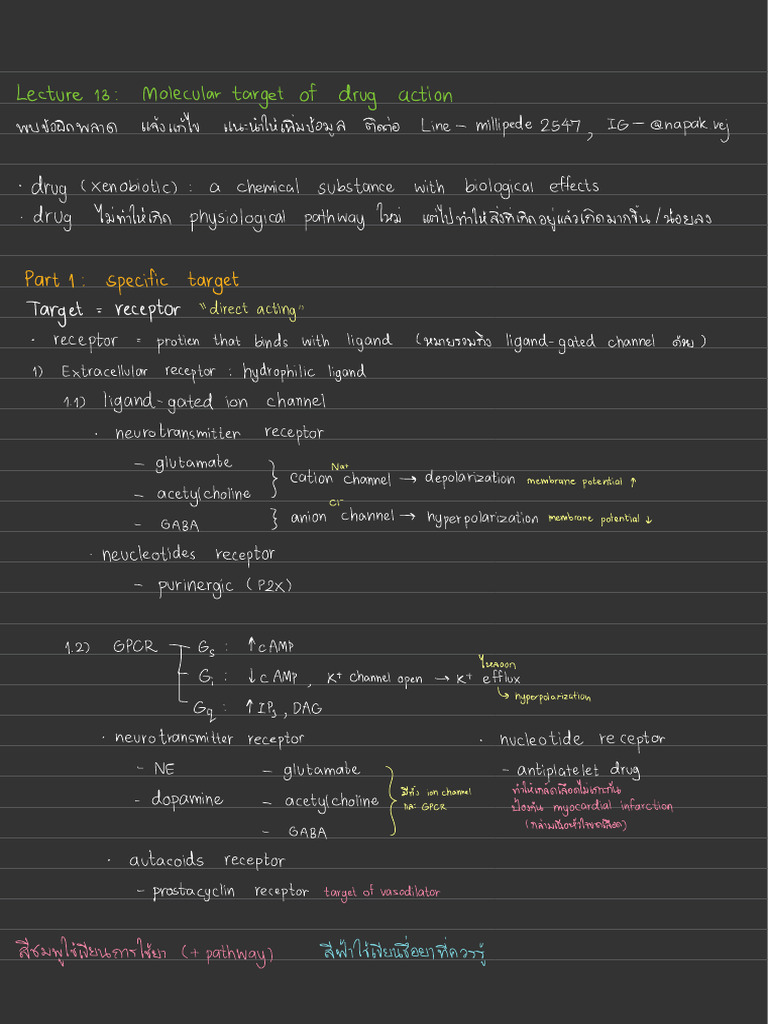 Lecture 13: Molecular target of drug action
พบข้อผิดพลาด แจ้งแก้ไข แนะนำให้เพิ่มข้อมูล ติดต่อ Line - millipede 2547, IG - @napak.vej
· drug (xenobiotic) : a chemical substance with biological effects
· drug ไม่ทำให้เกิด physiological pathway ใหม่ แต่ไปทำให้สิ่งที่เกิดอยู่แล้วเกิดมากขึ้น/น้อยลง
Part 1: specific target
Target = receptor "direct acting"
· receptor = protien that binds with ligand (หมายรวมถึง ligand-gated channel ด้วย)
1) Extracellular receptor : hydrophilic ligand
1.1) ligand-gated ion channel
· neurotransmitter receptor
- glutamate
- acetylcholine
Na+
cation channel → depolarization membrane potential ↑
- GABA
Cl-
anion channel → hyperpolarization membrane potential ↓
· neucleotides receptor
- purinergic (P2X)
1.2) GPCR Gs : ↑cAMP
Gi : ↓cAMP, K+ channel open → K+ efflux
ไหลออก
↳ hyperpolarization
Gq : ↑IP3, DAG
· neurotransmitter receptor
- NE
- dopamine
- glutamate
- acetylcholine
- GABA
มีทั้ง ion channel
และ GPCR
· nucleotide receptor
- antiplatelet drug
ทำให้เกล็ดเลือดไม่เกาะกัน
ป้องกัน myocardial infarction
(กล้ามเนื้อหัวใจขาดเลือด)
· autacoids receptor
- prostacyclin receptor target of vasodilator
สีชมพูใช้เขียนการใช้ยา (+ pathway) สีฟ้าใช้เขียนชื่อยาที่ควรรู้